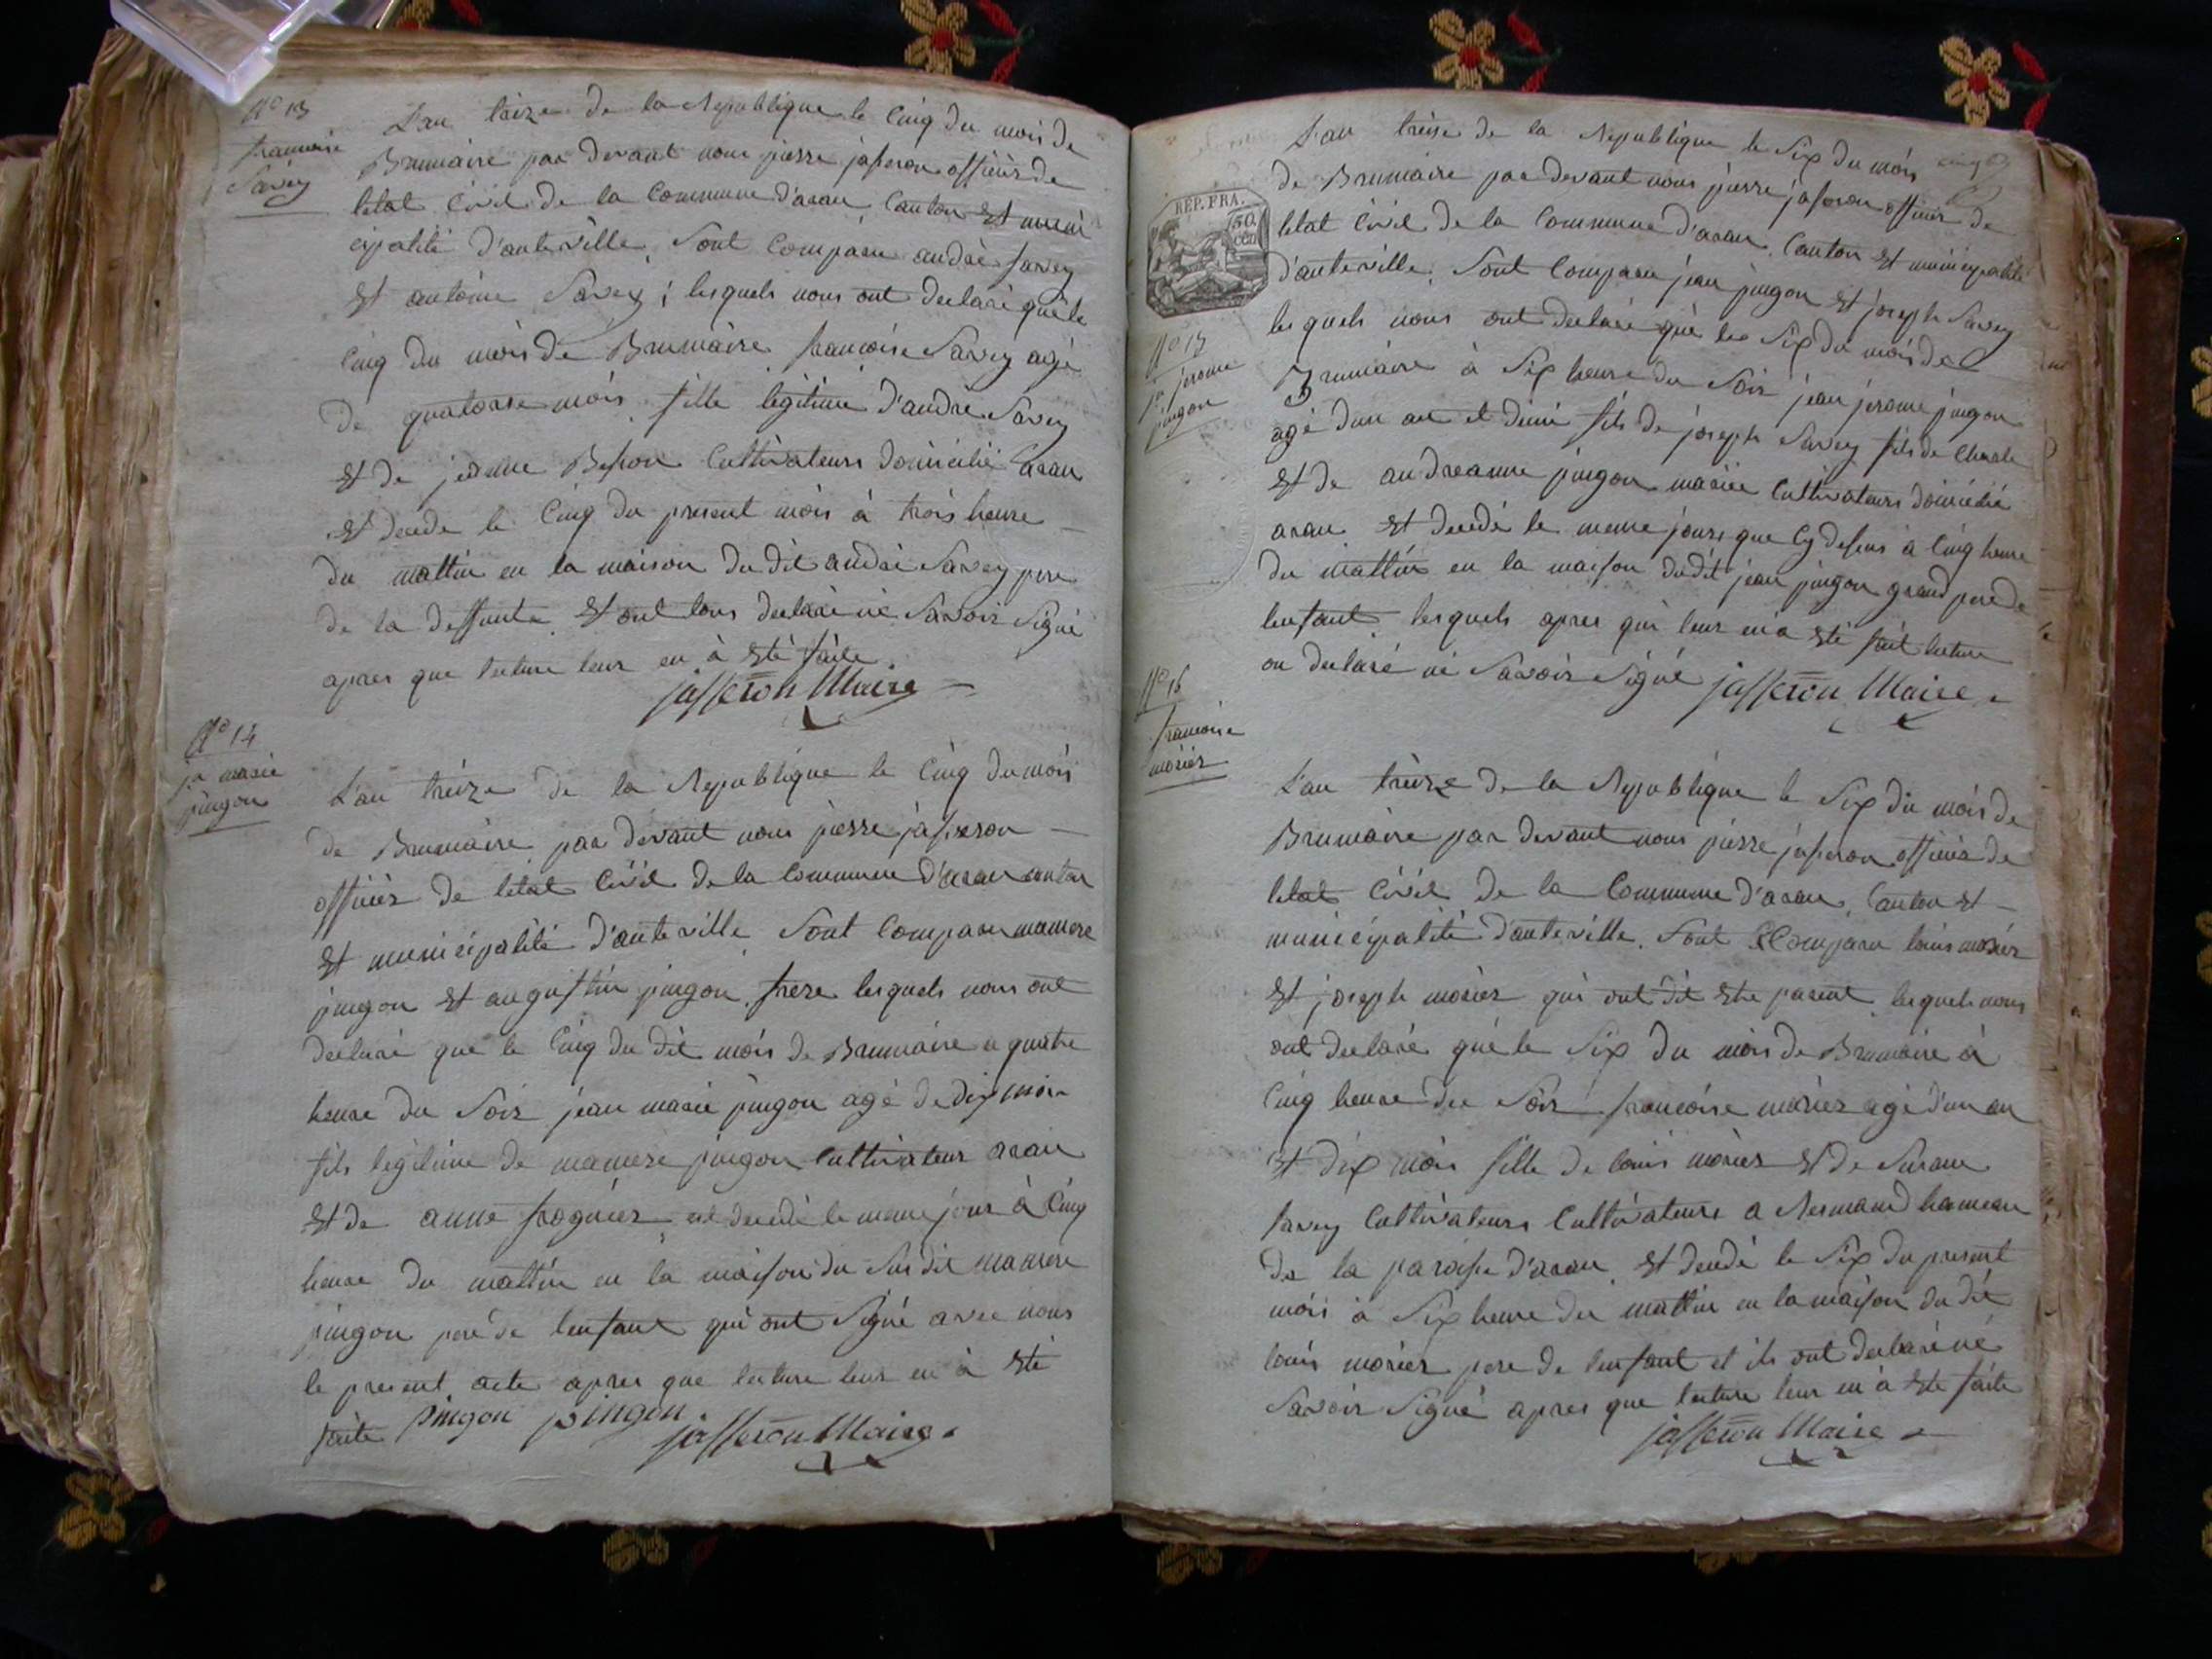 N° 13
francoise
Savey
L'an treize de la Republique le Cinq du mois de
Brumaire par devant nous pierre jasseron officier de
letat Civil de la Commune d'aran Canton Et munic
ipalité d'auteville, Sont Comparu andré savey
Et antoine Savey ; lesquels nous ont declaré que le
Cinq du mois de Brumaire francoise Savey agé
de quatorse mois fille legitime d'andré Savey
Et de jeanne Besson Cultivateurs domicilié aran
Et decede le Cinq du present mois à trois heure
du mattin en la maison du dit andré Savey pere
de la deffunte Et ont tous declaré né Savoir Signé
apres que lecture leur en à Eté faite
jasseron Maire
N° 14
jn marie
pingon
L'an treize de la Republique le Cinq du mois
de Brumaire par devant nous pierre jasseron
officier de letat Civil de la Commune d'aran canton
Et municipalité d'auteville Sont Comparu mamere
pingon Et augustin pingon frere lesquels nous ont
declaré que le Cinq du dit mois de Brumaire a quatre
heure du Soir jean marie pingon agé de dix mois
fils legitime de mamere pingon Cultivateur aran
Et de anne frognier est decedé le meme jour à Cinq
heure du mattin en la maison du Sus dit mamere
pingon peré de lenfant qui ont Signé avec nous
le present acte apres que lecture leur en à Eté
faite pingon pingon
jasseron Maire
REP. FRA.
50
cen
N° 15
jn jerome
pingon
L'an treise de la Republique le Six du mois
de Brumaire par devant nous pierre jasseron officier de
letat Civil de la Commune d'aran Canton Et municipalité
d'auteville. Sont Comparu jean pingon Et joseph Savey
lesquels nous ont declaré que les Six du mois de
Brumaire à Six heure du Soir jean jerome pingon
agé dun an et demi fils de joseph Savey fils de Charle
Et de andreanne pingon mariée Cultivateurs domicilié
aran Et decedé le meme jours que Cy dessus à Cinq heure
du mattin en la maison dudit jean pingon grand pere de
lenfant lesquels apres qui leur en a Eté fait lecture
on declaré né Savoir Signé jasseron Maire
N° 16
francoise
morier
L'an treize de la Republique le Six du mois de
Brumaire par devant nous pierre jasseron officier de
letat Civil de la Commune d'aran, Canton Et
municipalité d'auteville. Sont Comparu louis morier
Et joseph morier qui ont dit Etre parent lesquels nous
ont declaré que le Six du mois de Brumaire à
Cinq heure du Soir francoise morier agé d'un an
Et dix mois fille de louis morier Et de Susane
savey Cultivateurs Cultivateurs a Resmand hameau
de la paroisse d'aran Et decedé le Six du present
mois à Six heure du mattin en la maison du dit
louis morier pere de lenfant et ils ont declaré né
Savoir Signé apres que lecture leur en à Eté faite
jasseron Maire